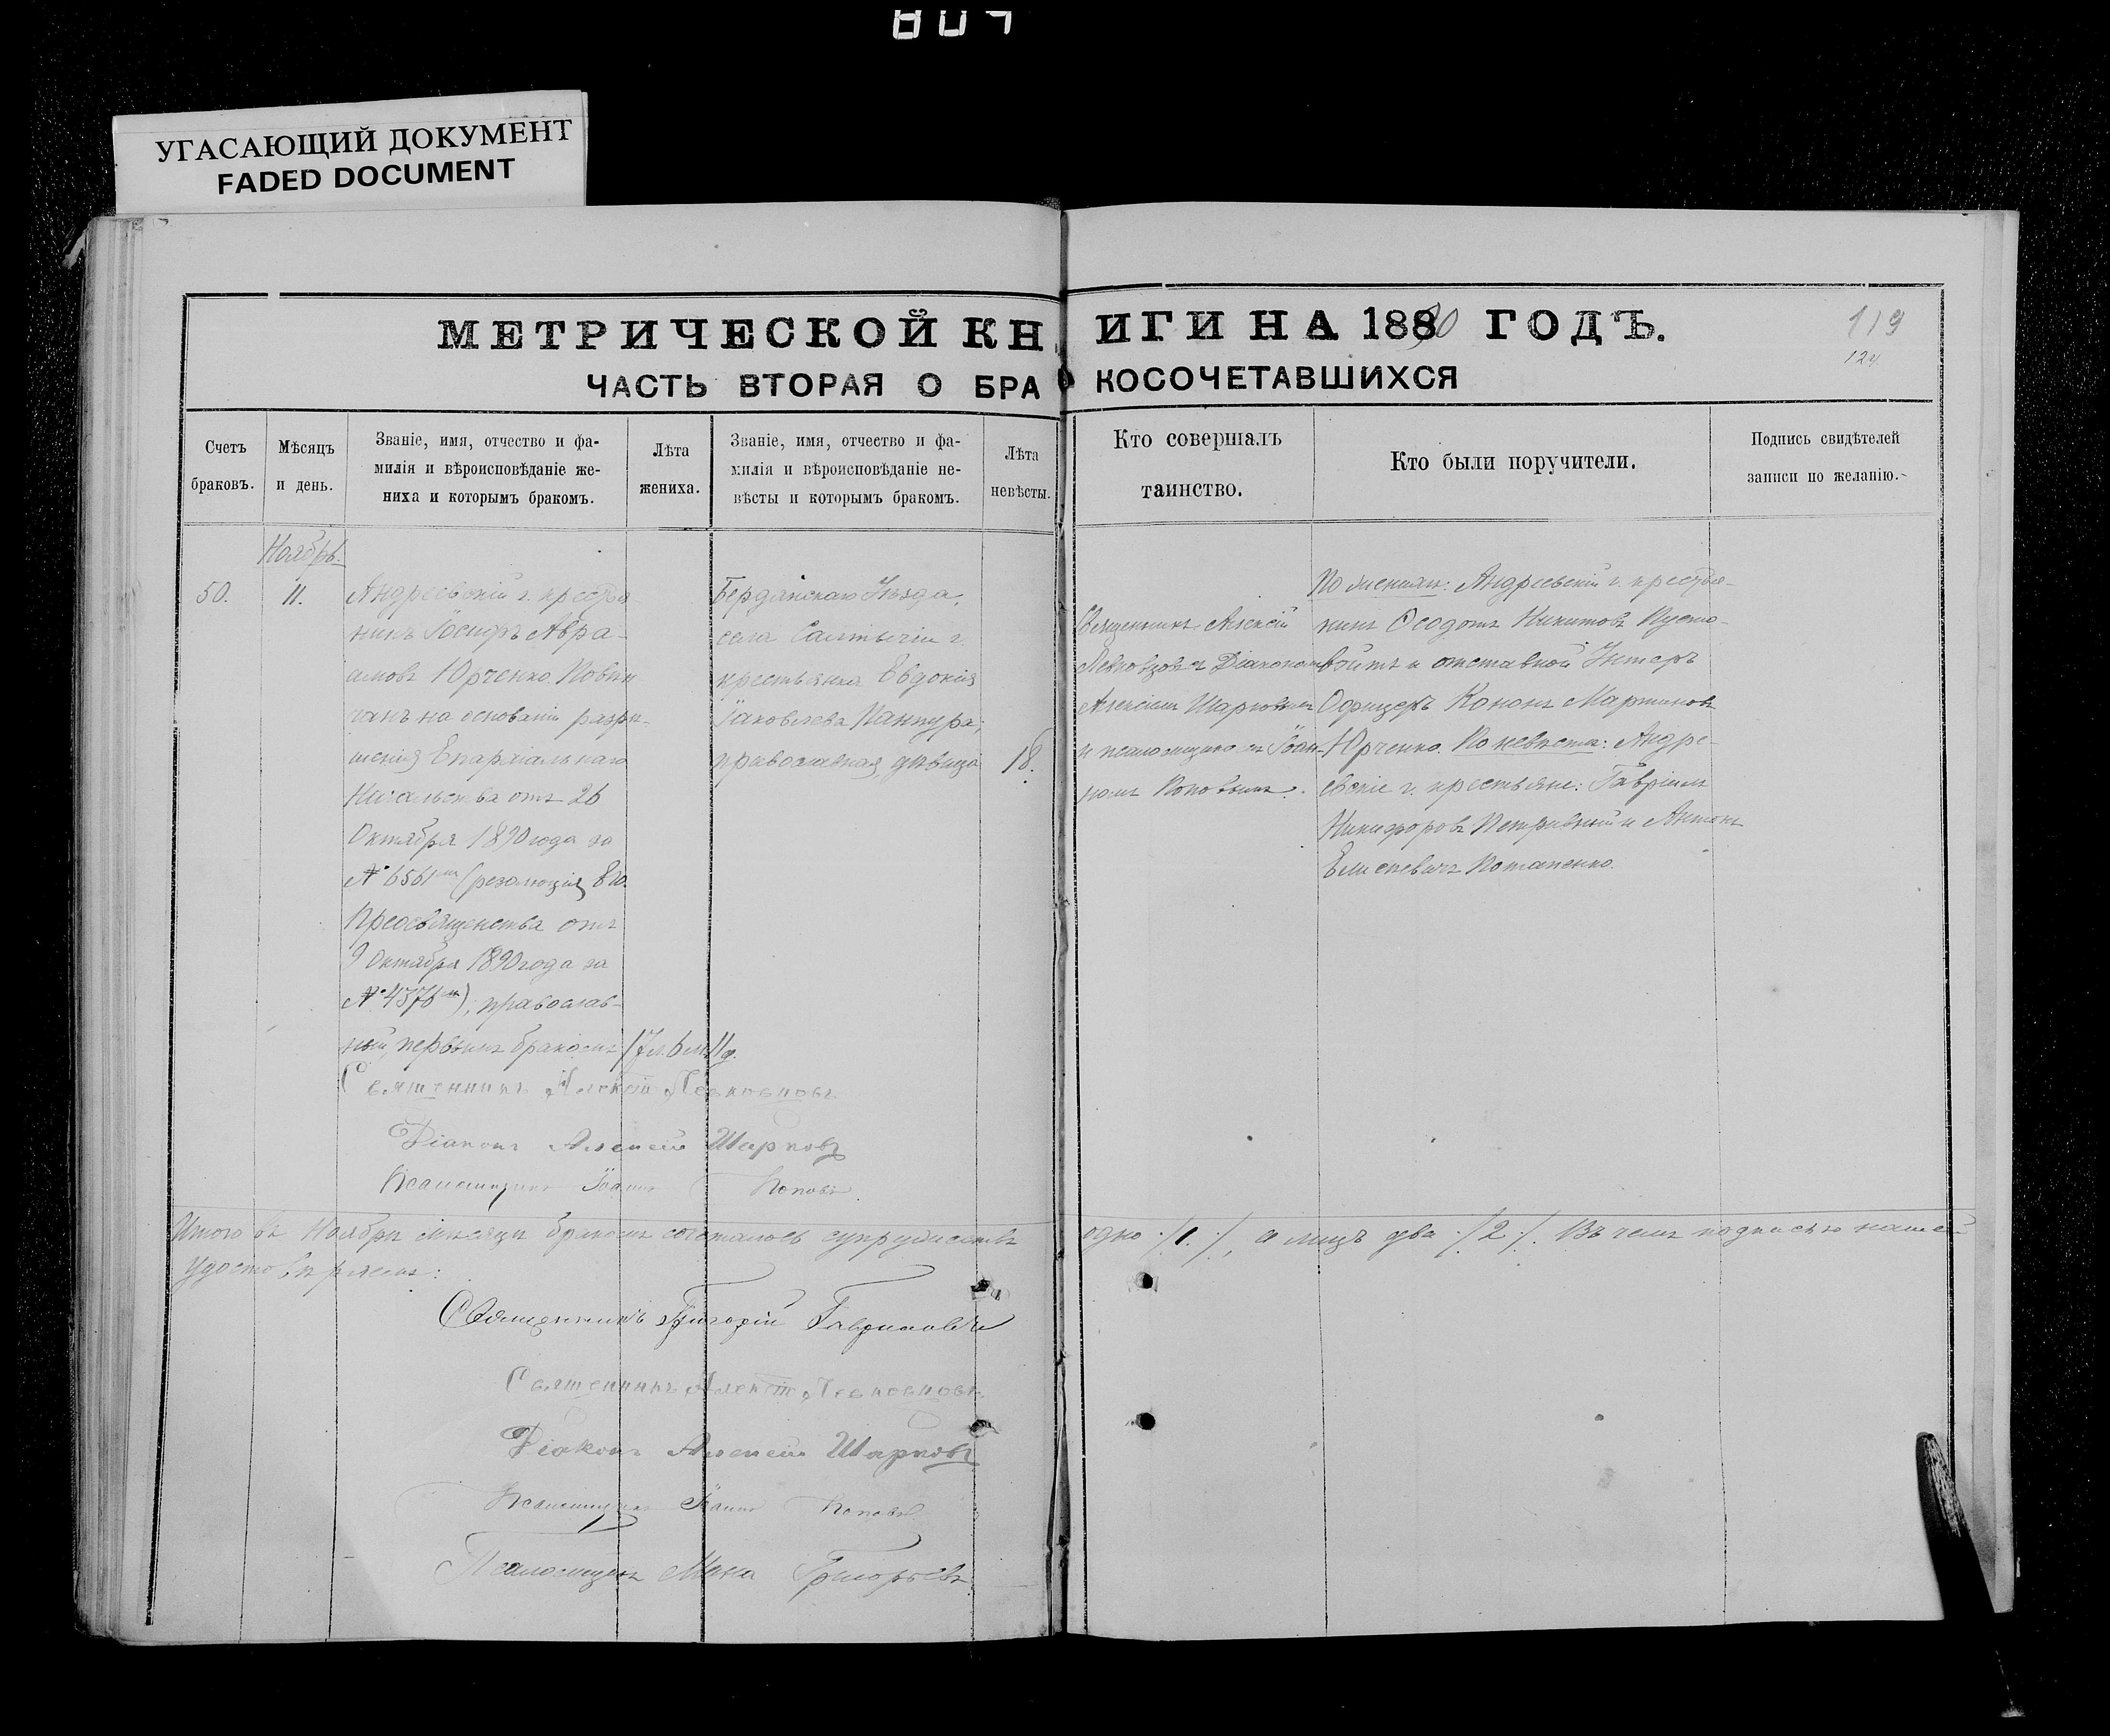 УГАСАЮЩИЙ ДОКУМЕНТ
FADED DOCUMENT
МЕТРИЧЕСКОЙ КНИГИ НА 1890 ГОДЪ.
119
124
ЧАСТЬ ВТОРАЯ О БРАКОСОЧЕТАВШИХСЯ
Счетъ
браковъ.
Мѣсяцъ
и день.
Званіе, имя, отчество и фа-
милія и вѣроисповѣданіе же-
ниха и которымъ бракомъ.
Лѣта
жениха.
Званіе, имя, отчество и фа-
милія и вѣроисповѣданіе не-
вѣсты и которымъ бракомъ.
Лѣта
невѣсты.
Кто совершалъ
таинство.
Кто были поручители.
Подпись свидѣтелей
записи по желанію.
50.
Ноябрь
11.
Андреевскій г. крестья-
нинъ Іосифъ Авра-
амовъ Юрченко. Повѣн-
чанъ на основаніи разрѣ-
шенія Епархіальнаго
Начальства отъ 26
Октября 1890 года за
№ 6561 (резолюція Его
Преосвященства отъ
9 Октября 1890 года за
№ 4576); православ-
ный, первымъ бракомъ
17 л. 6 м. 11 д.
Бердянскаго Уѣзда,
села Салтычіи г.
крестьянка Евдокія
Іаковлева Панпура;
православная дѣвица
18.
Священникъ Алексій
Левковцовъ съ Діакономъ
Алексіемъ Шарковымъ
и псаломщикомъ Іоан-
номъ Поповымъ.
По женихѣ: Андреевскій г. крестья-
нинъ Ѳеодотъ Никитовъ Пусто-
войтъ и отставной Унтеръ
Офицеръ Кононъ Мартиновъ
Юрченко. По невѣстѣ: Андре-
евскіе г. крестьяне: Гавріилъ
Никифоровъ Петривный и Антонъ
Елисѣевичъ Потапенко.
Священникъ Алексій Левковцовъ
Діаконъ Алексій Шарковъ
Псаломщикъ Іоаннъ Поповъ.
Итого въ Ноябрѣ мѣсяцѣ бракомъ сочеталось супружествъ одно /1/, а лицъ два /2/. Въ чемъ подписью нашей
удостовѣряемъ:
Священникъ Григорій Гавриловъ
Священникъ Алексій Левковцовъ
Діаконъ Алексій Шарковъ
Псаломщикъ Іоаннъ Поповъ
Псаломщикъ Григорьевъ